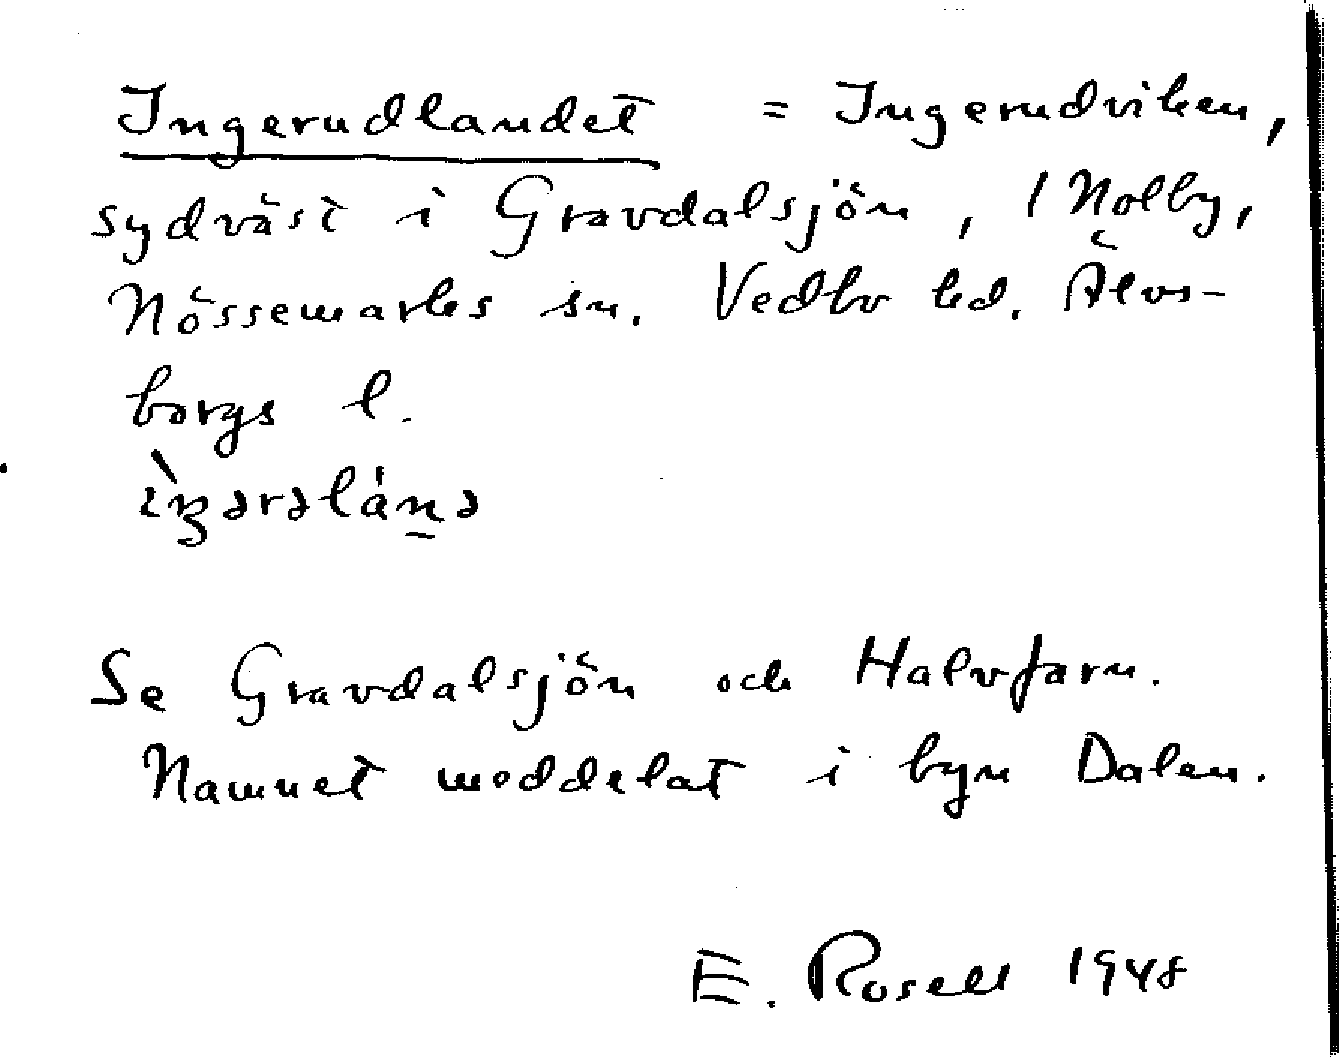 Ingerudlandet = Ingerudviken,
sydväst i Gravdalsjön, 1 Nolby,
Nössemarks sn. Vedbo hd. Älvs-
borgs l.
ìŋərəlánə
Se Gravdalsjön och Halvfarn.
Namnet meddelat i byn Dalen.
E. Rosell 1948